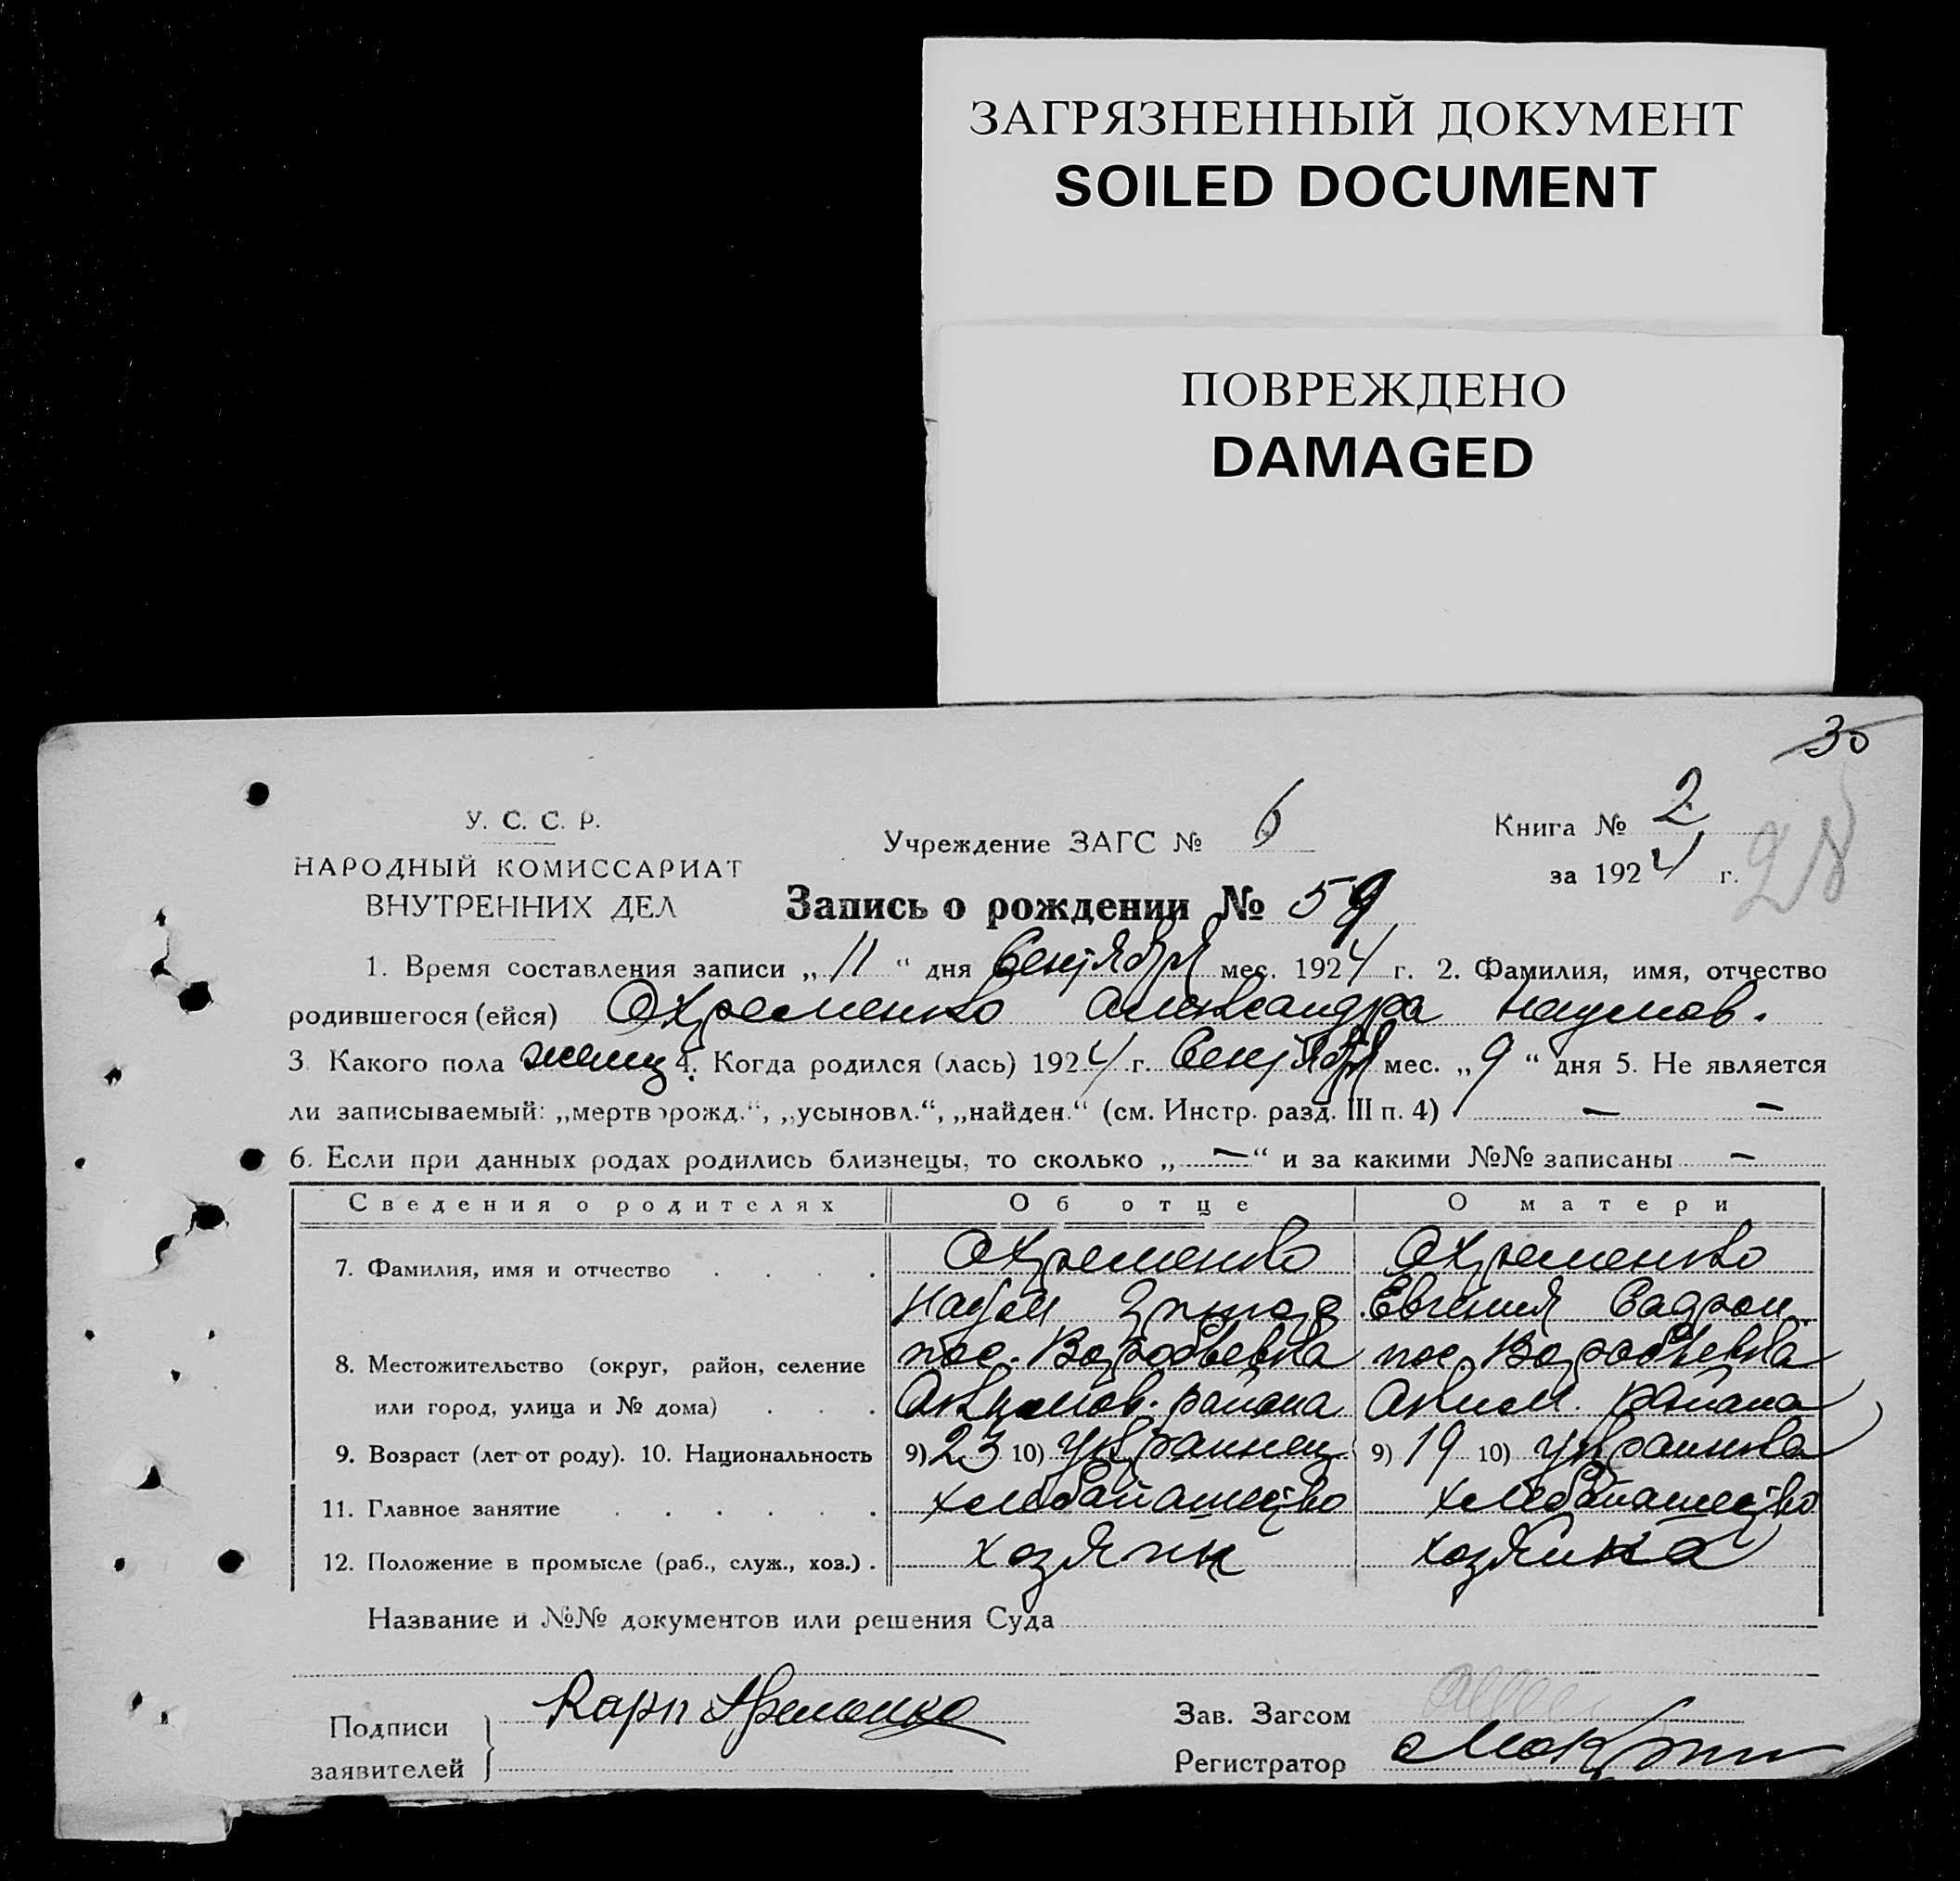 ЗАГРЯЗНЕННЫЙ ДОКУМЕНТ
SOILED DOCUMENT
ПОВРЕЖДЕНО
DAMAGED
35
У. С. С. Р.
НАРОДНЫЙ КОМИССАРИАТ
ВНУТРЕННИХ ДЕЛ
Учреждение ЗАГС № 6
Книга № 2
за 1924 г.
28
Запись о рождении № 59
1. Время составления записи „11“ дня Сентября мес. 1924 г. 2. Фамилия, имя, отчество
родившегося (ейся) Охременко Александра Наумов.
3. Какого пола женщ 4. Когда родился (лась) 1924 г. Сентября мес. „9“ дня 5. Не является
ли записываемый: „мертворожд.“, „усыновл.“, „найден.“ (см. Инстр. разд. III п. 4) — —
6. Если при данных родах родились близнецы, то сколько „—“ и за какими №№ записаны —
Сведения о родителях Об отце О матери
7. Фамилия, имя и отчество Охременко Охременко
Наум Евгения
8. Местожительство (округ, район, селение пос. Воробьевка пос. Воробьевка
или город, улица и № дома) Акимов. района Аким. района
9. Возраст (лет от роду). 10. Национальность 9) 23 10) украинец 9) 19 10) украинка
11. Главное занятие хлебопашество хлебопашество
12. Положение в промысле (раб., служ., хоз.) хозяин хозяйка
Название и №№ документов или решения Суда
Подписи заявителей Карп
Зав. Загсом
Регистратор